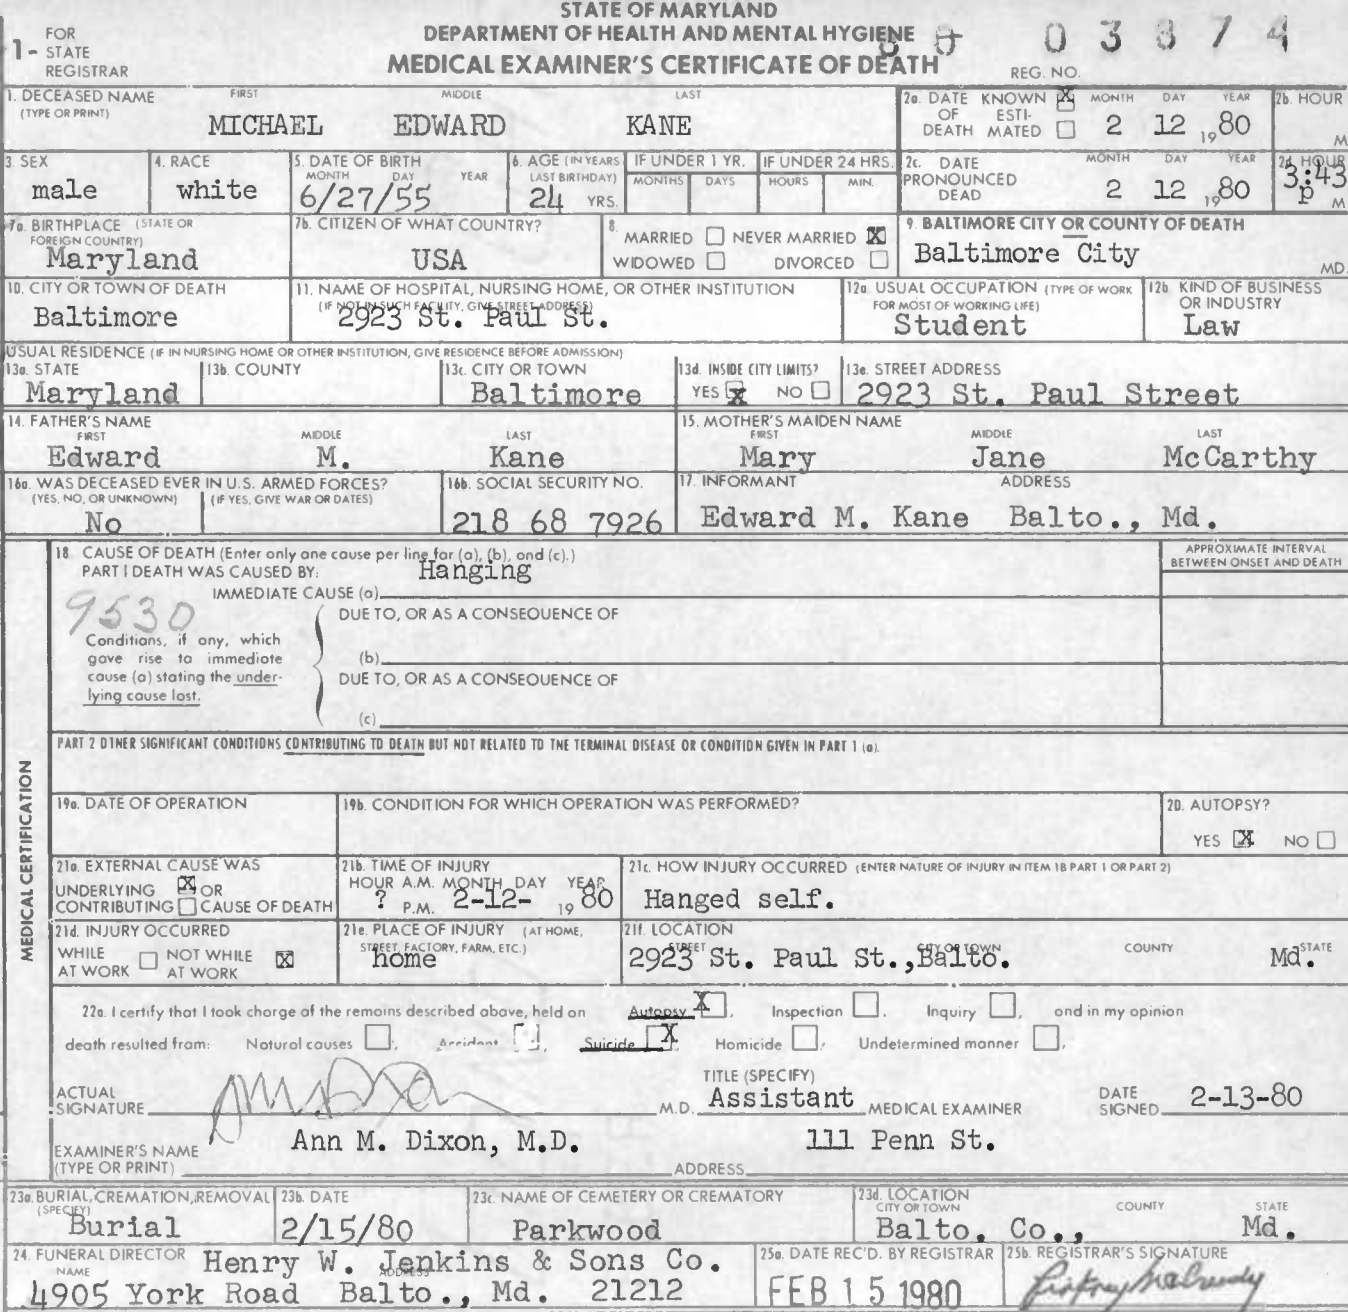 STATE OF MARYLAND
DEPARTMENT OF HEALTH AND MENTAL HYGIENE
MEDICAL EXAMINER'S CERTIFICATE OF DEATH
1- FOR STATE REGISTRAR
REG. NO. 80 03874
1. DECEASED NAME (TYPE OR PRINT) FIRST MIDDLE LAST
MICHAEL EDWARD KANE
2a. DATE OF DEATH KNOWN X ESTIMATED MONTH DAY YEAR 2 12 1980
2b. HOUR M
3. SEX male
4. RACE white
5. DATE OF BIRTH MONTH DAY YEAR 6/27/55
6. AGE (IN YEARS LAST BIRTHDAY) 24 YRS.
IF UNDER 1 YR. MONTHS DAYS
IF UNDER 24 HRS. HOURS MIN.
2c. DATE PRONOUNCED DEAD MONTH DAY YEAR 2 12 1980
2d. HOUR 3:43 p M
7a. BIRTHPLACE (STATE OR FOREIGN COUNTRY) Maryland
7b. CITIZEN OF WHAT COUNTRY? USA
8. MARRIED NEVER MARRIED X WIDOWED DIVORCED
9. BALTIMORE CITY OR COUNTY OF DEATH Baltimore City MD.
10. CITY OR TOWN OF DEATH Baltimore
11. NAME OF HOSPITAL, NURSING HOME, OR OTHER INSTITUTION (IF NOT IN SUCH FACILITY, GIVE STREET ADDRESS) 2923 St. Paul St.
12a. USUAL OCCUPATION (TYPE OF WORK FOR MOST OF WORKING LIFE) Student
12b. KIND OF BUSINESS OR INDUSTRY Law
USUAL RESIDENCE (IF IN NURSING HOME OR OTHER INSTITUTION, GIVE RESIDENCE BEFORE ADMISSION)
13a. STATE Maryland
13b. COUNTY
13c. CITY OR TOWN Baltimore
13d. INSIDE CITY LIMITS? YES X NO
13e. STREET ADDRESS 2923 St. Paul Street
14. FATHER'S NAME FIRST MIDDLE LAST
Edward M. Kane
15. MOTHER'S MAIDEN NAME FIRST MIDDLE LAST
Mary Jane McCarthy
16a. WAS DECEASED EVER IN U.S. ARMED FORCES? (YES, NO, OR UNKNOWN) (IF YES, GIVE WAR OR DATES) No
16b. SOCIAL SECURITY NO. 218 68 7926
17. INFORMANT ADDRESS
Edward M. Kane Balto., Md.
MEDICAL CERTIFICATION
18. CAUSE OF DEATH (Enter only one cause per line for (a), (b), and (c).)
PART I DEATH WAS CAUSED BY:
IMMEDIATE CAUSE (a) Hanging
APPROXIMATE INTERVAL BETWEEN ONSET AND DEATH
9530
Conditions, if any, which gave rise to immediate cause (a) stating the underlying cause last.
DUE TO, OR AS A CONSEQUENCE OF
(b)
DUE TO, OR AS A CONSEQUENCE OF
(c)
PART 2 OTHER SIGNIFICANT CONDITIONS CONTRIBUTING TO DEATH BUT NOT RELATED TO THE TERMINAL DISEASE OR CONDITION GIVEN IN PART 1 (a).
19a. DATE OF OPERATION
19b. CONDITION FOR WHICH OPERATION WAS PERFORMED?
20. AUTOPSY? YES X NO
21a. EXTERNAL CAUSE WAS UNDERLYING X OR CONTRIBUTING CAUSE OF DEATH
21b. TIME OF INJURY HOUR A.M. P.M. MONTH DAY YEAR ? 2-12- 1980
21c. HOW INJURY OCCURRED (ENTER NATURE OF INJURY IN ITEM 18 PART 1 OR PART 2)
Hanged self.
21d. INJURY OCCURRED WHILE AT WORK NOT WHILE AT WORK X
21e. PLACE OF INJURY (AT HOME, STREET, FACTORY, FARM, ETC.) home
21f. LOCATION STREET CITY OR TOWN COUNTY STATE
2923 St. Paul St., Balto. Md.
22a. I certify that I took charge of the remains described above, held on Autopsy X, Inspection, Inquiry, and in my opinion
death resulted from: Natural causes, Accident, Suicide X, Homicide, Undetermined manner.
ACTUAL SIGNATURE M.D.
TITLE (SPECIFY) Assistant MEDICAL EXAMINER
DATE SIGNED 2-13-80
EXAMINER'S NAME (TYPE OR PRINT) Ann M. Dixon, M.D.
ADDRESS 111 Penn St.
23a. BURIAL, CREMATION, REMOVAL (SPECIFY) Burial
23b. DATE 2/15/80
23c. NAME OF CEMETERY OR CREMATORY Parkwood
23d. LOCATION CITY OR TOWN COUNTY STATE
Balto. Co., Md.
24. FUNERAL DIRECTOR NAME ADDRESS
Henry W. Jenkins & Sons Co.
4905 York Road Balto., Md. 21212
25a. DATE REC'D. BY REGISTRAR FEB 15 1980
25b. REGISTRAR'S SIGNATURE